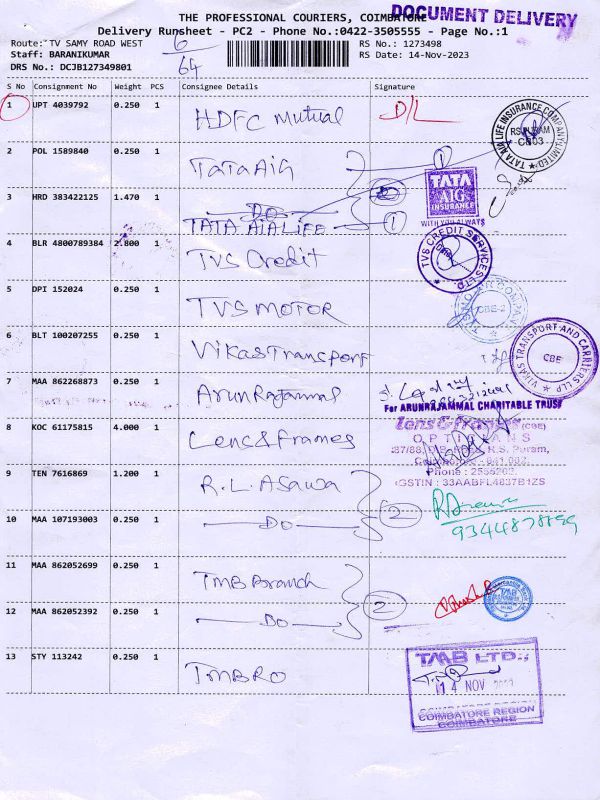 THE PROFESSIONAL COURIERS, COIMBATORE
DOCUMENT DELIVERY
Delivery Runsheet - PC2 - Phone No.:0422-3505555 - Page No.:1
Route: TV SAMY ROAD WEST
6
64
RS No.: 1273498
Staff: BARANIKUMAR
RS Date: 14-Nov-2023
DRS No.: DCJB127349801
S No Consignment No Weight PCS Consignee Details Signature
1 UPT 4039792 0.250 1 HDFC Mutual D/L
TATA AIA LIFE INSURANCE COMPANY LIMITED
RS PURAM
CB03
2 POL 1589840 0.250 1 TATA AIG 1
TATA
AIG
INSURANCE
WITH YOU ALWAYS
3 HRD 383422125 1.470 1 DO
TATA AIA LIFE 1
4 BLR 4800789384 2.800 1 TVS Credit
TVS CREDIT SERVICES LTD.
5 DPI 152024 0.250 1 TVS MOTOR
CBE-2
6 BLT 100207255 0.250 1 Vikas Transport
VIKAS TRANSPORT AND CARRIERS LLP
CBE
7 MAA 862268873 0.250 1 ArunRajammal
For ARUNRAJAMMAL CHARITABLE TRUST
8 KOC 61175815 4.000 1 Lens & Frames
Lens & Frames (CBE)
OPTICIANS
R.S. Puram,
Phone : 2555202.
GSTIN : 33AABFL4837B1ZS
9 TEN 7616869 1.200 1 R.L. ASAWA
2
10 MAA 107193003 0.250 1 DO
11 MAA 862052699 0.250 1 TMB Branch
TMB
2
12 MAA 862052392 0.250 1 DO
13 STY 113242 0.250 1 TMB RO
TMB LTD.,
14 NOV 2023
COIMBATORE REGION
COIMBATORE